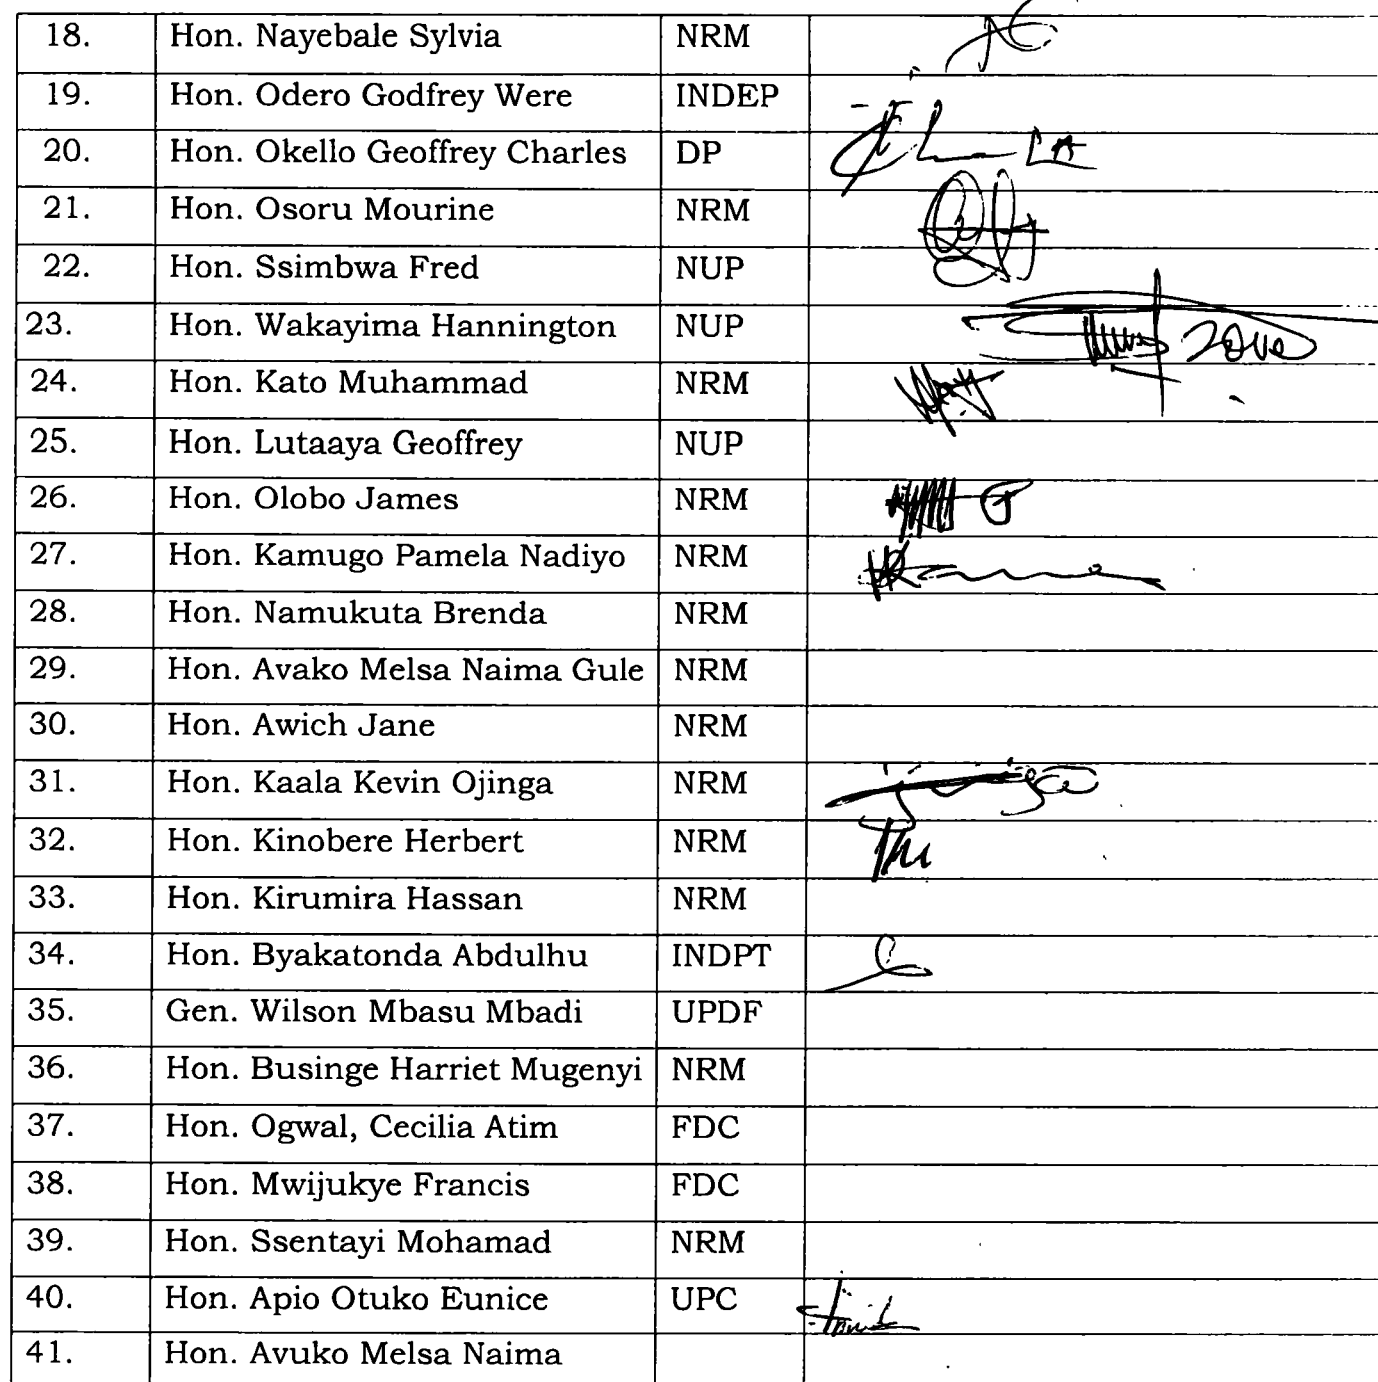 18. Hon. Nayebale Sylvia NRM
19. Hon. Odero Godfrey Were INDEP
20. Hon. Okello Geoffrey Charles DP
21. Hon. Osoru Mourine NRM
22. Hon. Ssimbwa Fred NUP
23. Hon. Wakayima Hannington NUP
24. Hon. Kato Muhammad NRM
25. Hon. Lutaaya Geoffrey NUP
26. Hon. Olobo James NRM
27. Hon. Kamugo Pamela Nadiyo NRM
28. Hon. Namukuta Brenda NRM
29. Hon. Avako Melsa Naima Gule NRM
30. Hon. Awich Jane NRM
31. Hon. Kaala Kevin Ojinga NRM
32. Hon. Kinobere Herbert NRM
33. Hon. Kirumira Hassan NRM
34. Hon. Byakatonda Abdulhu INDPT
35. Gen. Wilson Mbasu Mbadi UPDF
36. Hon. Businge Harriet Mugenyi NRM
37. Hon. Ogwal, Cecilia Atim FDC
38. Hon. Mwijukye Francis FDC
39. Hon. Ssentayi Mohamad NRM
40. Hon. Apio Otuko Eunice UPC
41. Hon. Avuko Melsa Naima